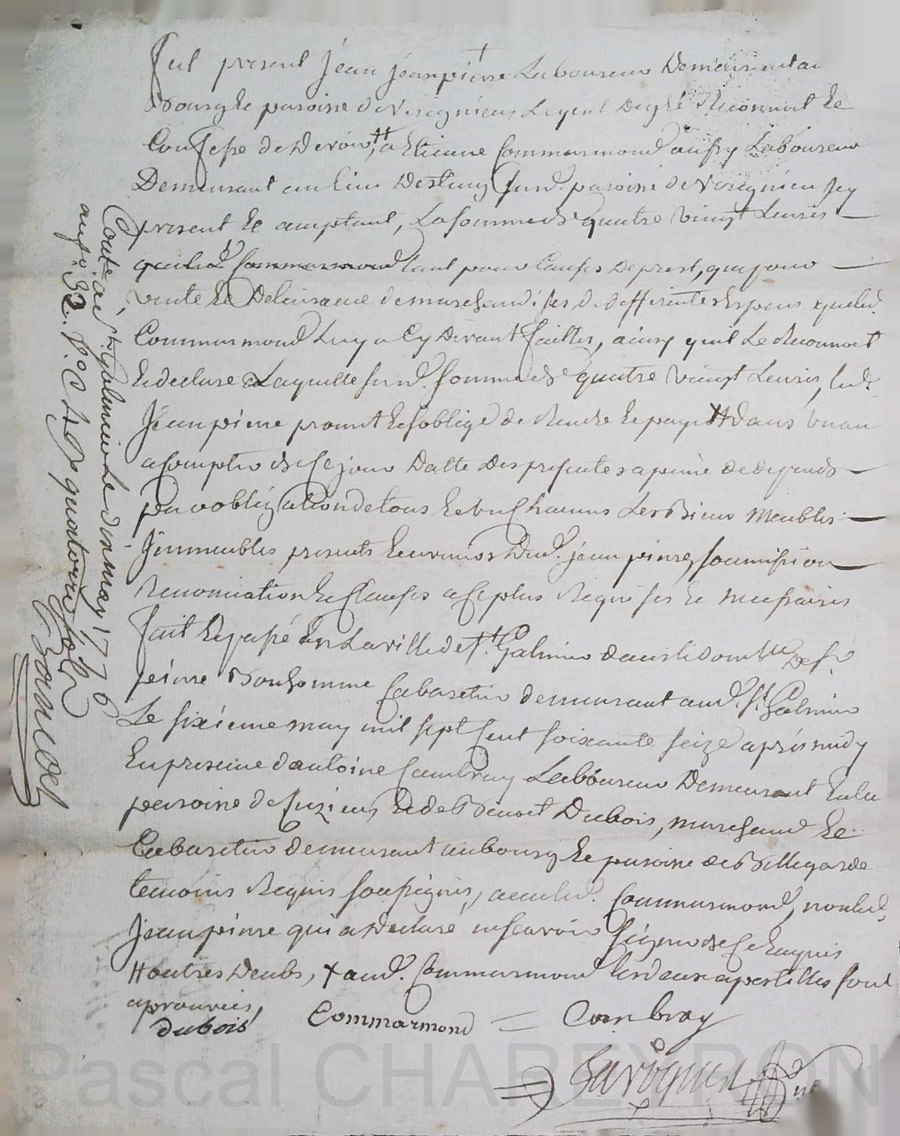 fut present Jean Jeanpierre Laboureur Demeurant au
Bourg et paroisse de Veirignieu Lequel De gré Reconnoit et
Confesse de Devoir, ## a Etienne Commarmond aussy Laboureur
Demeurant au lieu Des                paroisse de Veirignieu Icy
present et acceptant, La somme de quatre vingt Livres
           Commarmond tant pour Causes de prest, que pour
vente et Delivrance de marchandises de differentes Especes que led.
Commarmond Luy a Cy Devant faittes, ainsy quil Le Reconnoit
et declare Laquelle susd. somme de quatre vingt Livres, led.
Jeanpierre promet et soblige de Rendre et payer # Dans un an
a Compter de Ce jour Datte Des presentes a peine de depends
par obligation de tous et un Chacuns Les Biens Meubles
Immeubles presents et avenir Dud. jeanpierre, soumission
Renonciation et Clauses a Ce plus Requises et necessaires
fait et passé En La ville de St. Galmier dans le domille de sr.
peirre Bonhomme Cabaretier demeurant aud. St. Galmier
Le sixieme may mil sept Cent soixante seize après midy
En presence d'antoine Cambray Laboureur Demeurant En la
paroisse de Cuzieu et de Benoit Dubois, marchand et
Cabaretier demeurant au bourg et paroisse de Bellegarde
temoins Requis soussignés, avec led. Commarmond, non led.
Jeanpierre qui a Declaré ne scavoir signer de Ce Enquis
#                 + aud. Commarmond Les deux apostilles sont
aprouvées,
dubois Commarmond = Cambray

Conté a St. Galmier Le dix may 1776
                      quatorze sols

Pascal CHAREYRON